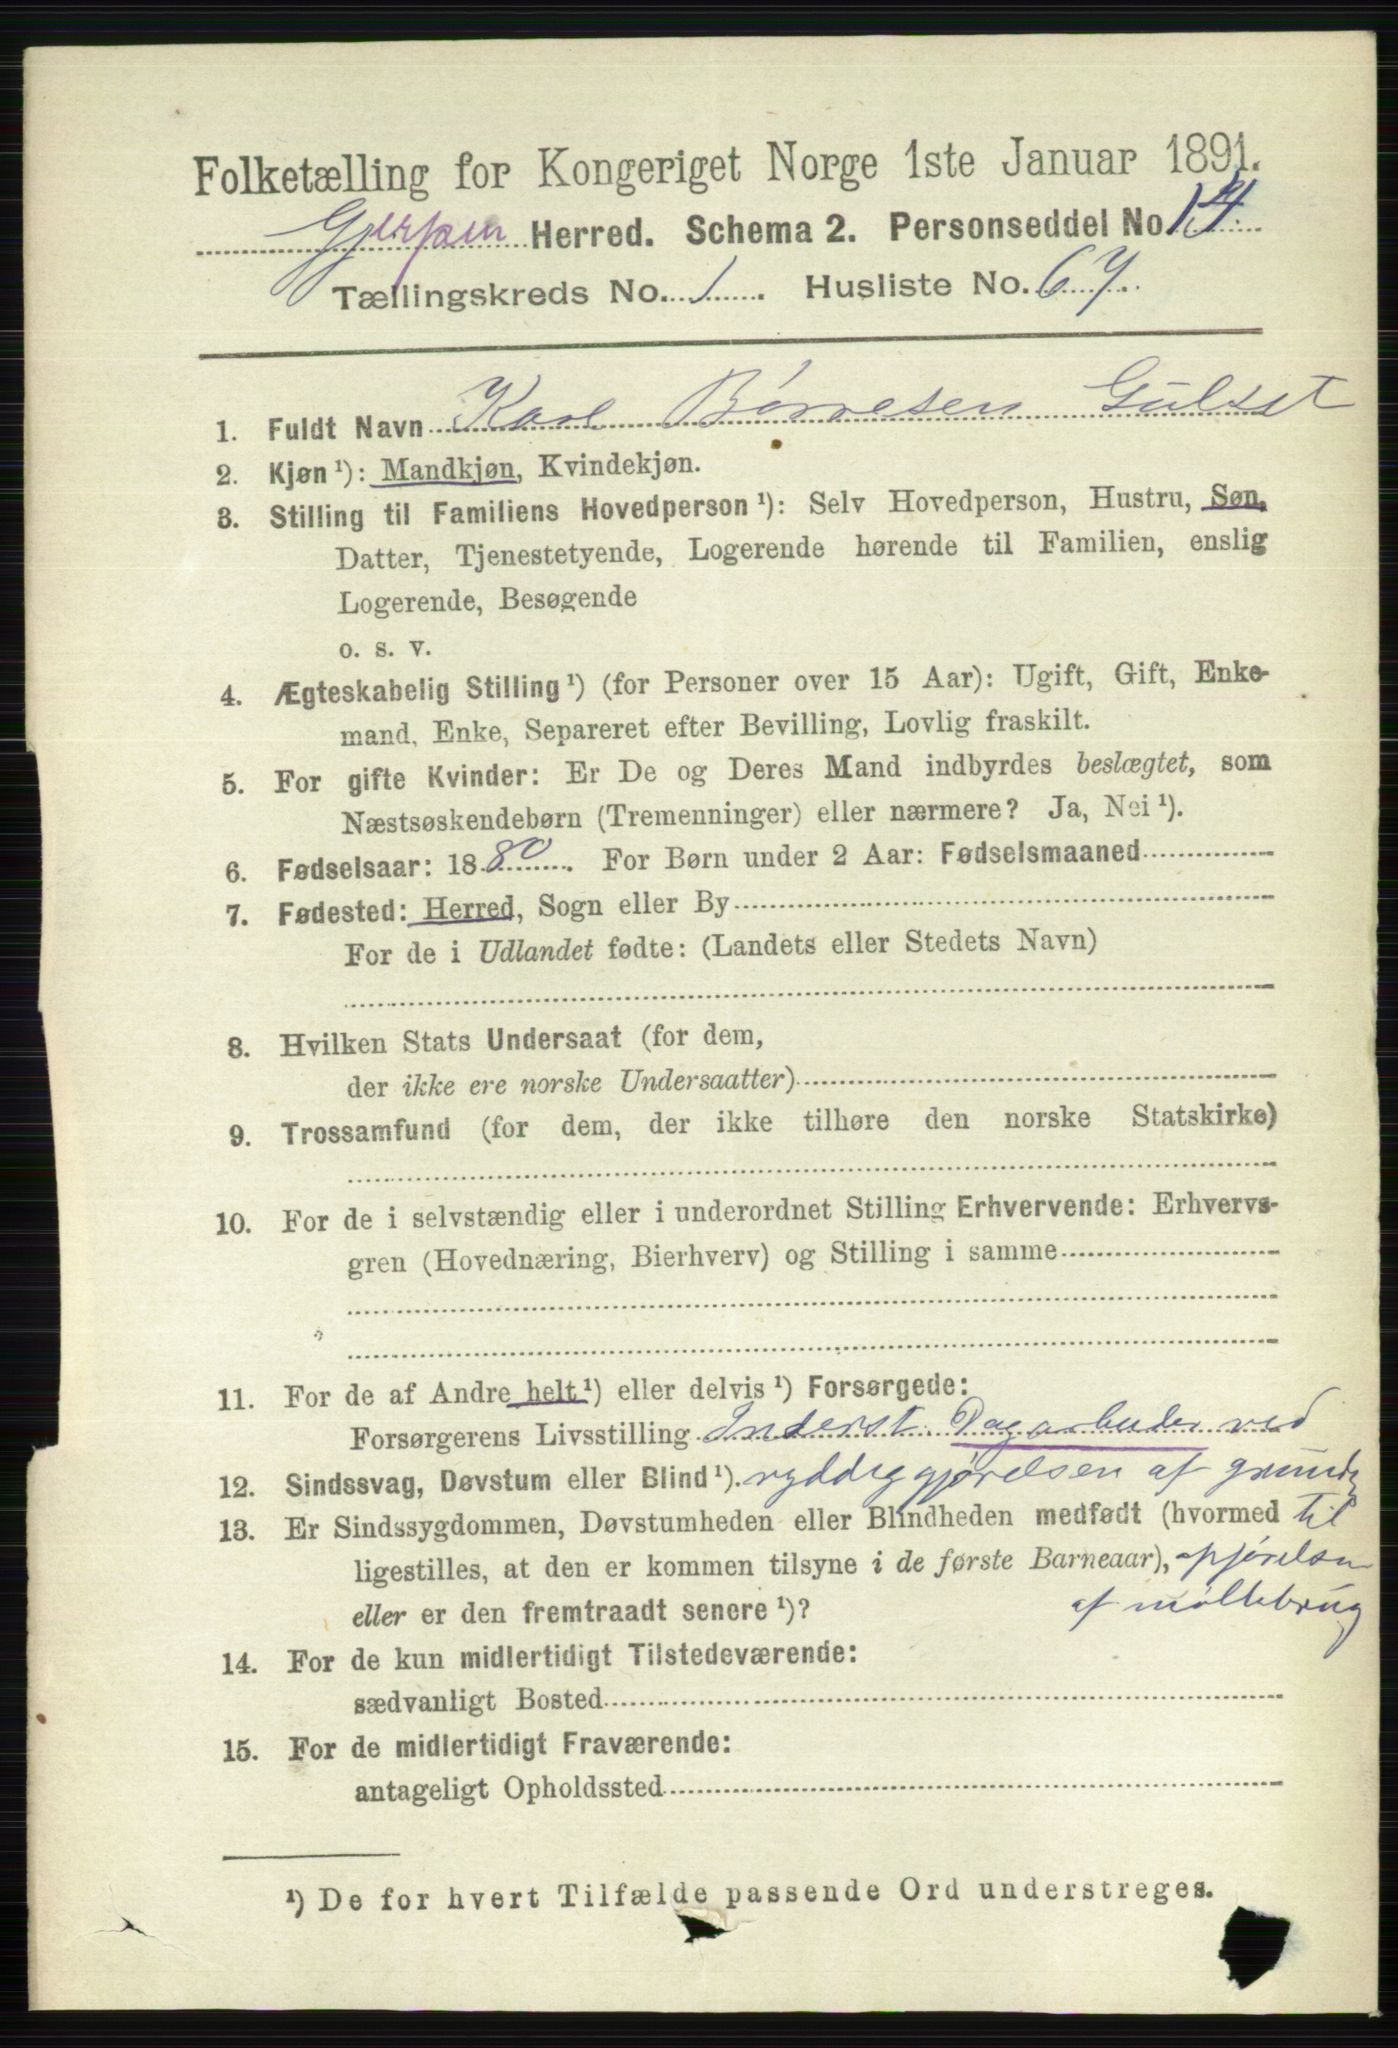 Folketælling for Kongeriget Norge 1ste Januar 1891.
Gjerpen Herred. Schema 2. Personseddel No. 14.
Tællingskreds No. 1. Husliste No. 67.
1. Fuldt Navn Karl Børresen Gulset
2. Kjøn ¹): Mandkjøn, Kvindekjøn.
3. Stilling til Familiens Hovedperson ¹): Selv Hovedperson, Hustru, Søn,
Datter, Tjenestetyende, Logerende hørende til Familien, enslig
Logerende, Besøgende
o. s. v.
4. Ægteskabelig Stilling ¹) (for Personer over 15 Aar): Ugift, Gift, Enke-
mand, Enke, Separeret efter Bevilling, Lovlig fraskilt.
5. For gifte Kvinder: Er De og Deres Mand indbyrdes beslægtet, som
Næstsøskendebørn (Tremenninger) eller nærmere? Ja, Nei ¹).
6. Fødselsaar: 1880. For Børn under 2 Aar: Fødselsmaaned
7. Fødested: Herred, Sogn eller By
For de i Udlandet fødte: (Landets eller Stedets Navn)
8. Hvilken Stats Undersaat (for dem,
der ikke ere norske Undersaatter)
9. Trossamfund (for dem, der ikke tilhøre den norske Statskirke)
10. For de i selvstændig eller i underordnet Stilling Erhvervende: Erhvervs-
gren (Hovednæring, Bierhverv) og Stilling i samme
11. For de af Andre helt ¹) eller delvis ¹) Forsørgede:
Forsørgerens Livsstilling Inderst Dagarbeider ved
12. Sindssvag, Døvstum eller Blind ¹). ryddiggjørelsen af grund
13. Er Sindssygdommen, Døvstumheden eller Blindheden medfødt (hvormed til
ligestilles, at den er kommen tilsyne i de første Barneaar), opførelsen
eller er den fremtraadt senere ¹)? af møllebrug
14. For de kun midlertidigt Tilstedeværende:
sædvanligt Bosted
15. For de midlertidigt Fraværende:
antageligt Opholdssted
¹) De for hvert Tilfælde passende Ord understreges.